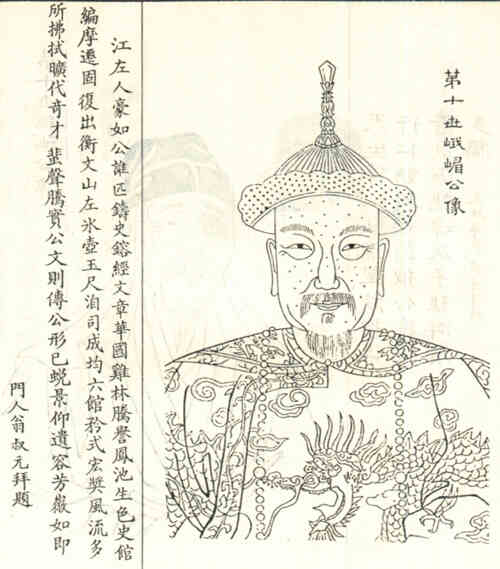 第十世峨嵋公像
江左人豪如公誰匹鑄史鎔經文章華國雞林騰譽鳳池生色史館
編摩遷固復出衡文山左氷壺玉尺洎司成均六館矜式宏奬風流多
所拂拭曠代奇才蜚聲騰實公文則傳公形已蛻景仰遺容芳徽如即
門人翁叔元拜題